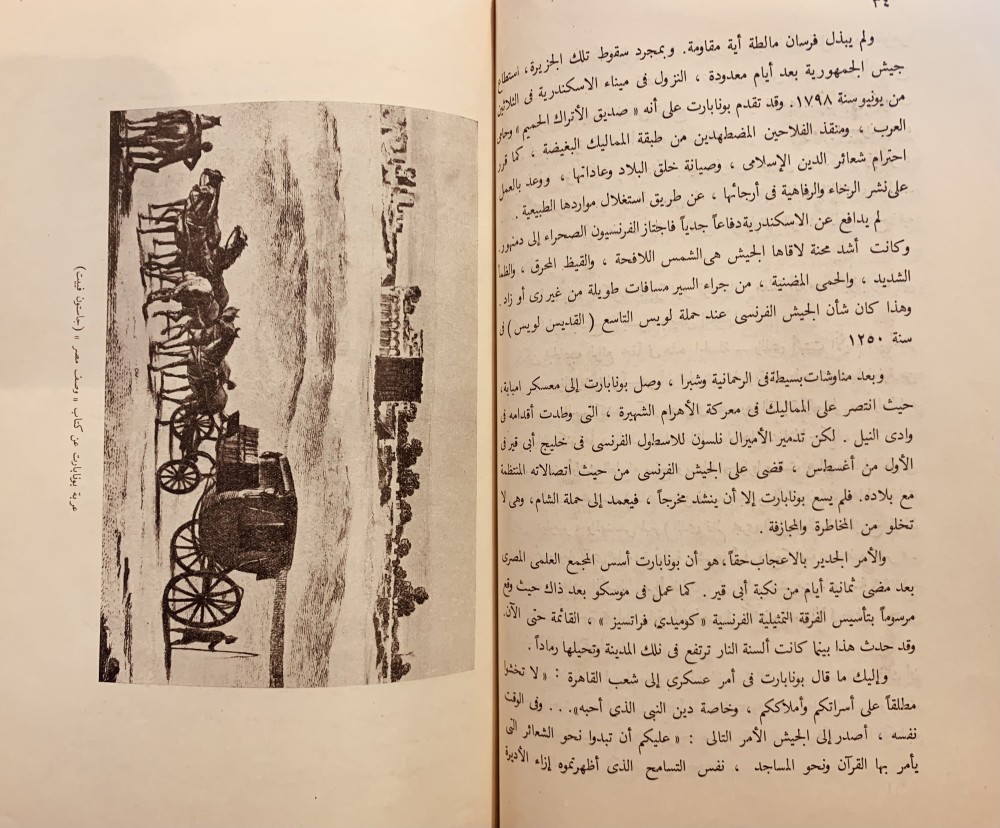 ٣٤
ولم يبذل فرسان مالطة أية مقاومة. وبمجرد سقوط تلك الجزيرة، استطاع
جيش الجمهورية بعد أيام معدودة ، النزول فى ميناء الاسكندرية فى الثلاثين
من يونيو سنة ١٧٩٨. وقد تقدم بونابارت على أنه « صديق الأتراك الحميم » وحامى
العرب ، ومنقذ الفلاحين المضطهدين من طبقة المماليك البغيضة ، كما قرر
احترام شعائر الدين الإسلامى ، وصيانة خلق البلاد وعاداتها ، ووعد بالعمل
على نشر الرخاء والرفاهية فى أرجائها ، عن طريق استغلال مواردها الطبيعية .
لم يدافع عن الاسكندرية دفاعاً جدياً فاجتاز الفرنسيون الصحراء إلى دمنهور.
وكانت أشد محنة لاقاها الجيش هى الشمس اللافحة ، والقيظ المحرق ، والظمأ
الشديد ، والحمى المضنية ، من جراء السير مسافات طويلة من غير رى أو زاد .
وهذا كان شأن الجيش الفرنسى عند حملة لويس التاسع ( القديس لويس ) فى
سنة ١٢٥٠
وبعد مناوشات بسيطة فى الرحمانية وشبرا ، وصل بونابارت إلى معسكر امبابة،
حيث انتصر على المماليك فى معركة الأهرام الشهيرة ، التى وطدت أقدامه فى
وادى النيل . لكن تدمير الأميرال نلسون للاسطول الفرنسى فى خليج أبى قير فى
الأول من أغسطس ، قضى على الجيش الفرنسى من حيث اتصالاته المنتظمة
مع بلاده. فلم يسع بونابارت إلا أن ينشد مخرجاً ، فيعمد إلى حملة الشام، وهى لا
تخلو من المخاطرة والمجازفة .
والأمر الجدير بالاعجاب حقاً، هو أن بونابارت أسس المجمع العلمى المصرى
بعد مضى ثمانية أيام من نكبة أبى قير . كما عمل فى موسكو بعد ذاك حيث وقع
مرسوماً بتأسيس الفرقة التمثيلية الفرنسية « كوميدى فراتسيز » ، القائمة حتى الآن.
وقد حدث هذا بينما كانت ألسنة النار ترتفع فى تلك المدينة وتحيلها رماداً .
وإليك ما قال بونابارت فى أمر عسكرى إلى شعب القاهرة : « لا تخشوا
مطلقاً على أسراتكم وأملاككم ، وخاصة دين النبى الذى أحبه». . . وفى الوقت
نفسه ، أصدر إلى الجيش الأمر التالى : « عليكم أن تبدوا نحو الشعائر التى
يأمر بها القرآن ونحو المساجد ، نفس التسامح الذى أظهرتموه إزاء الأديرة
عربة بونابارت عن كتاب « وصف مصر » (جاستون فييت)